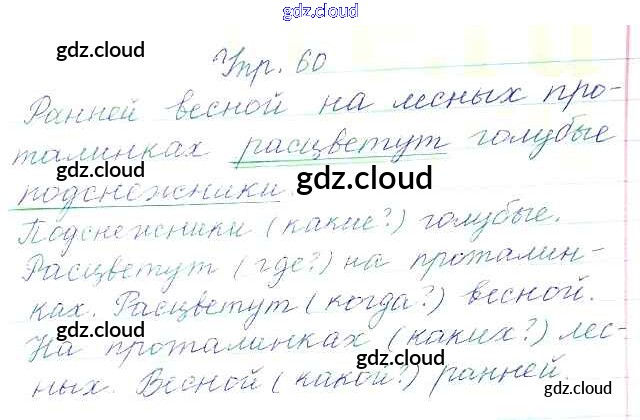 gdz.cloud
gdz.cloud
gdz.cloud
Упр. 60
Ранней весной на лесных про-
талинках расцветут голубые
подснежники.
gdz.cloud
Подснежники (какие?) голубые.
Расцветут (где?) на проталин-
ках. Расцветут (когда?) весной.
gdz.cloud
На проталинках (каких?) лес-
gdz.cloud
ных. Весной (какой?) ранней.
gdz.cloud